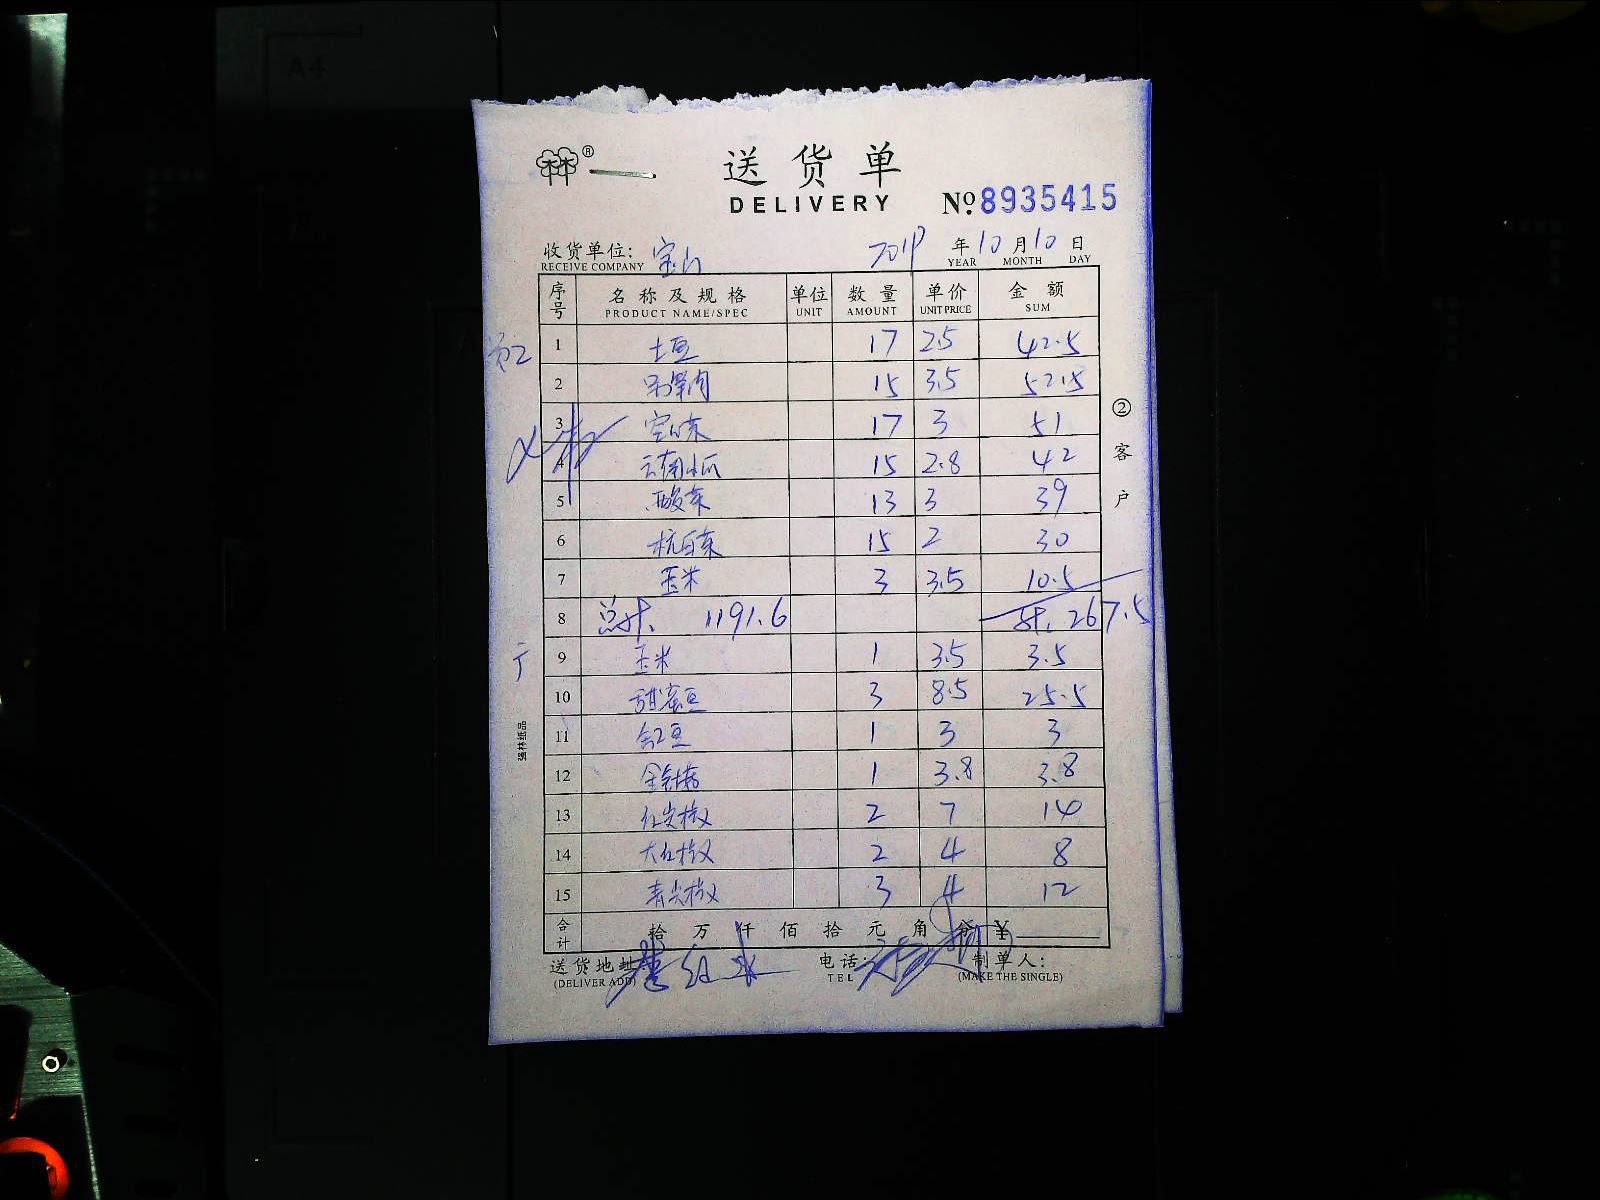 送货单
DELIVERY
№ 8935415
收货单位: 宝山 2019 年 10 月 10 日
RECEIVE COMPANY YEAR MONTH DAY
序号 名称及规格 单位 数量 单价 金额
PRODUCT NAME/SPEC UNIT AMOUNT UNIT PRICE SUM
1 土豆 17 2.5 42.5
2 15 3.5 52.5
3 17 3 51
4 云南小瓜 15 2.8 42
5 酸菜 13 3 39
6 杭白菜 15 2 30
7 玉米 3 3.5 10.5
8 总计. 1191.6 计. 267.5
9 玉米 1 3.5 3.5
10 甜蜜豆 3 8.5 25.5
11 红豆 1 3 3
12 金针菇 1 3.8 3.8
13 红尖椒 2 7 14
14 大红椒 2 4 8
15 青尖椒 3 4 12
合计 拾 万 仟 佰 拾 元 角 分 ¥
送货地址 电话: 制单人:
(DELIVER ADD) TEL (MAKE THE SINGLE)
② 客户
强林纸品
A4